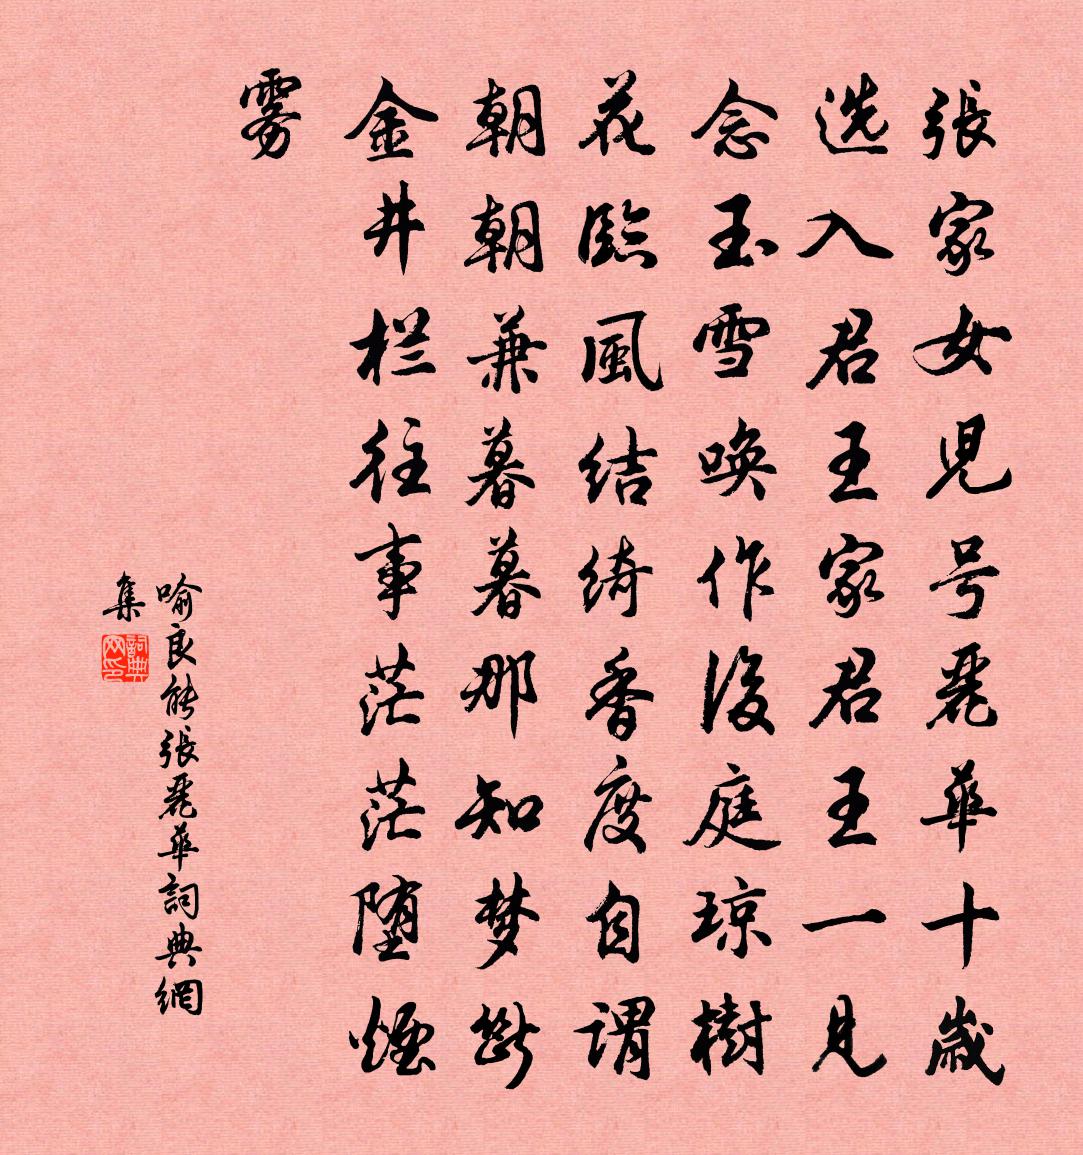 張家女児号麗華十歳
选入君王家君王一見
念玉雪唤作後庭琼樹
花臨風结绮香度自谓
朝朝兼暮暮那知梦斷
金井栏往事茫茫堕煙
雾
喻良能張麗華詞典網
集
詞典网印